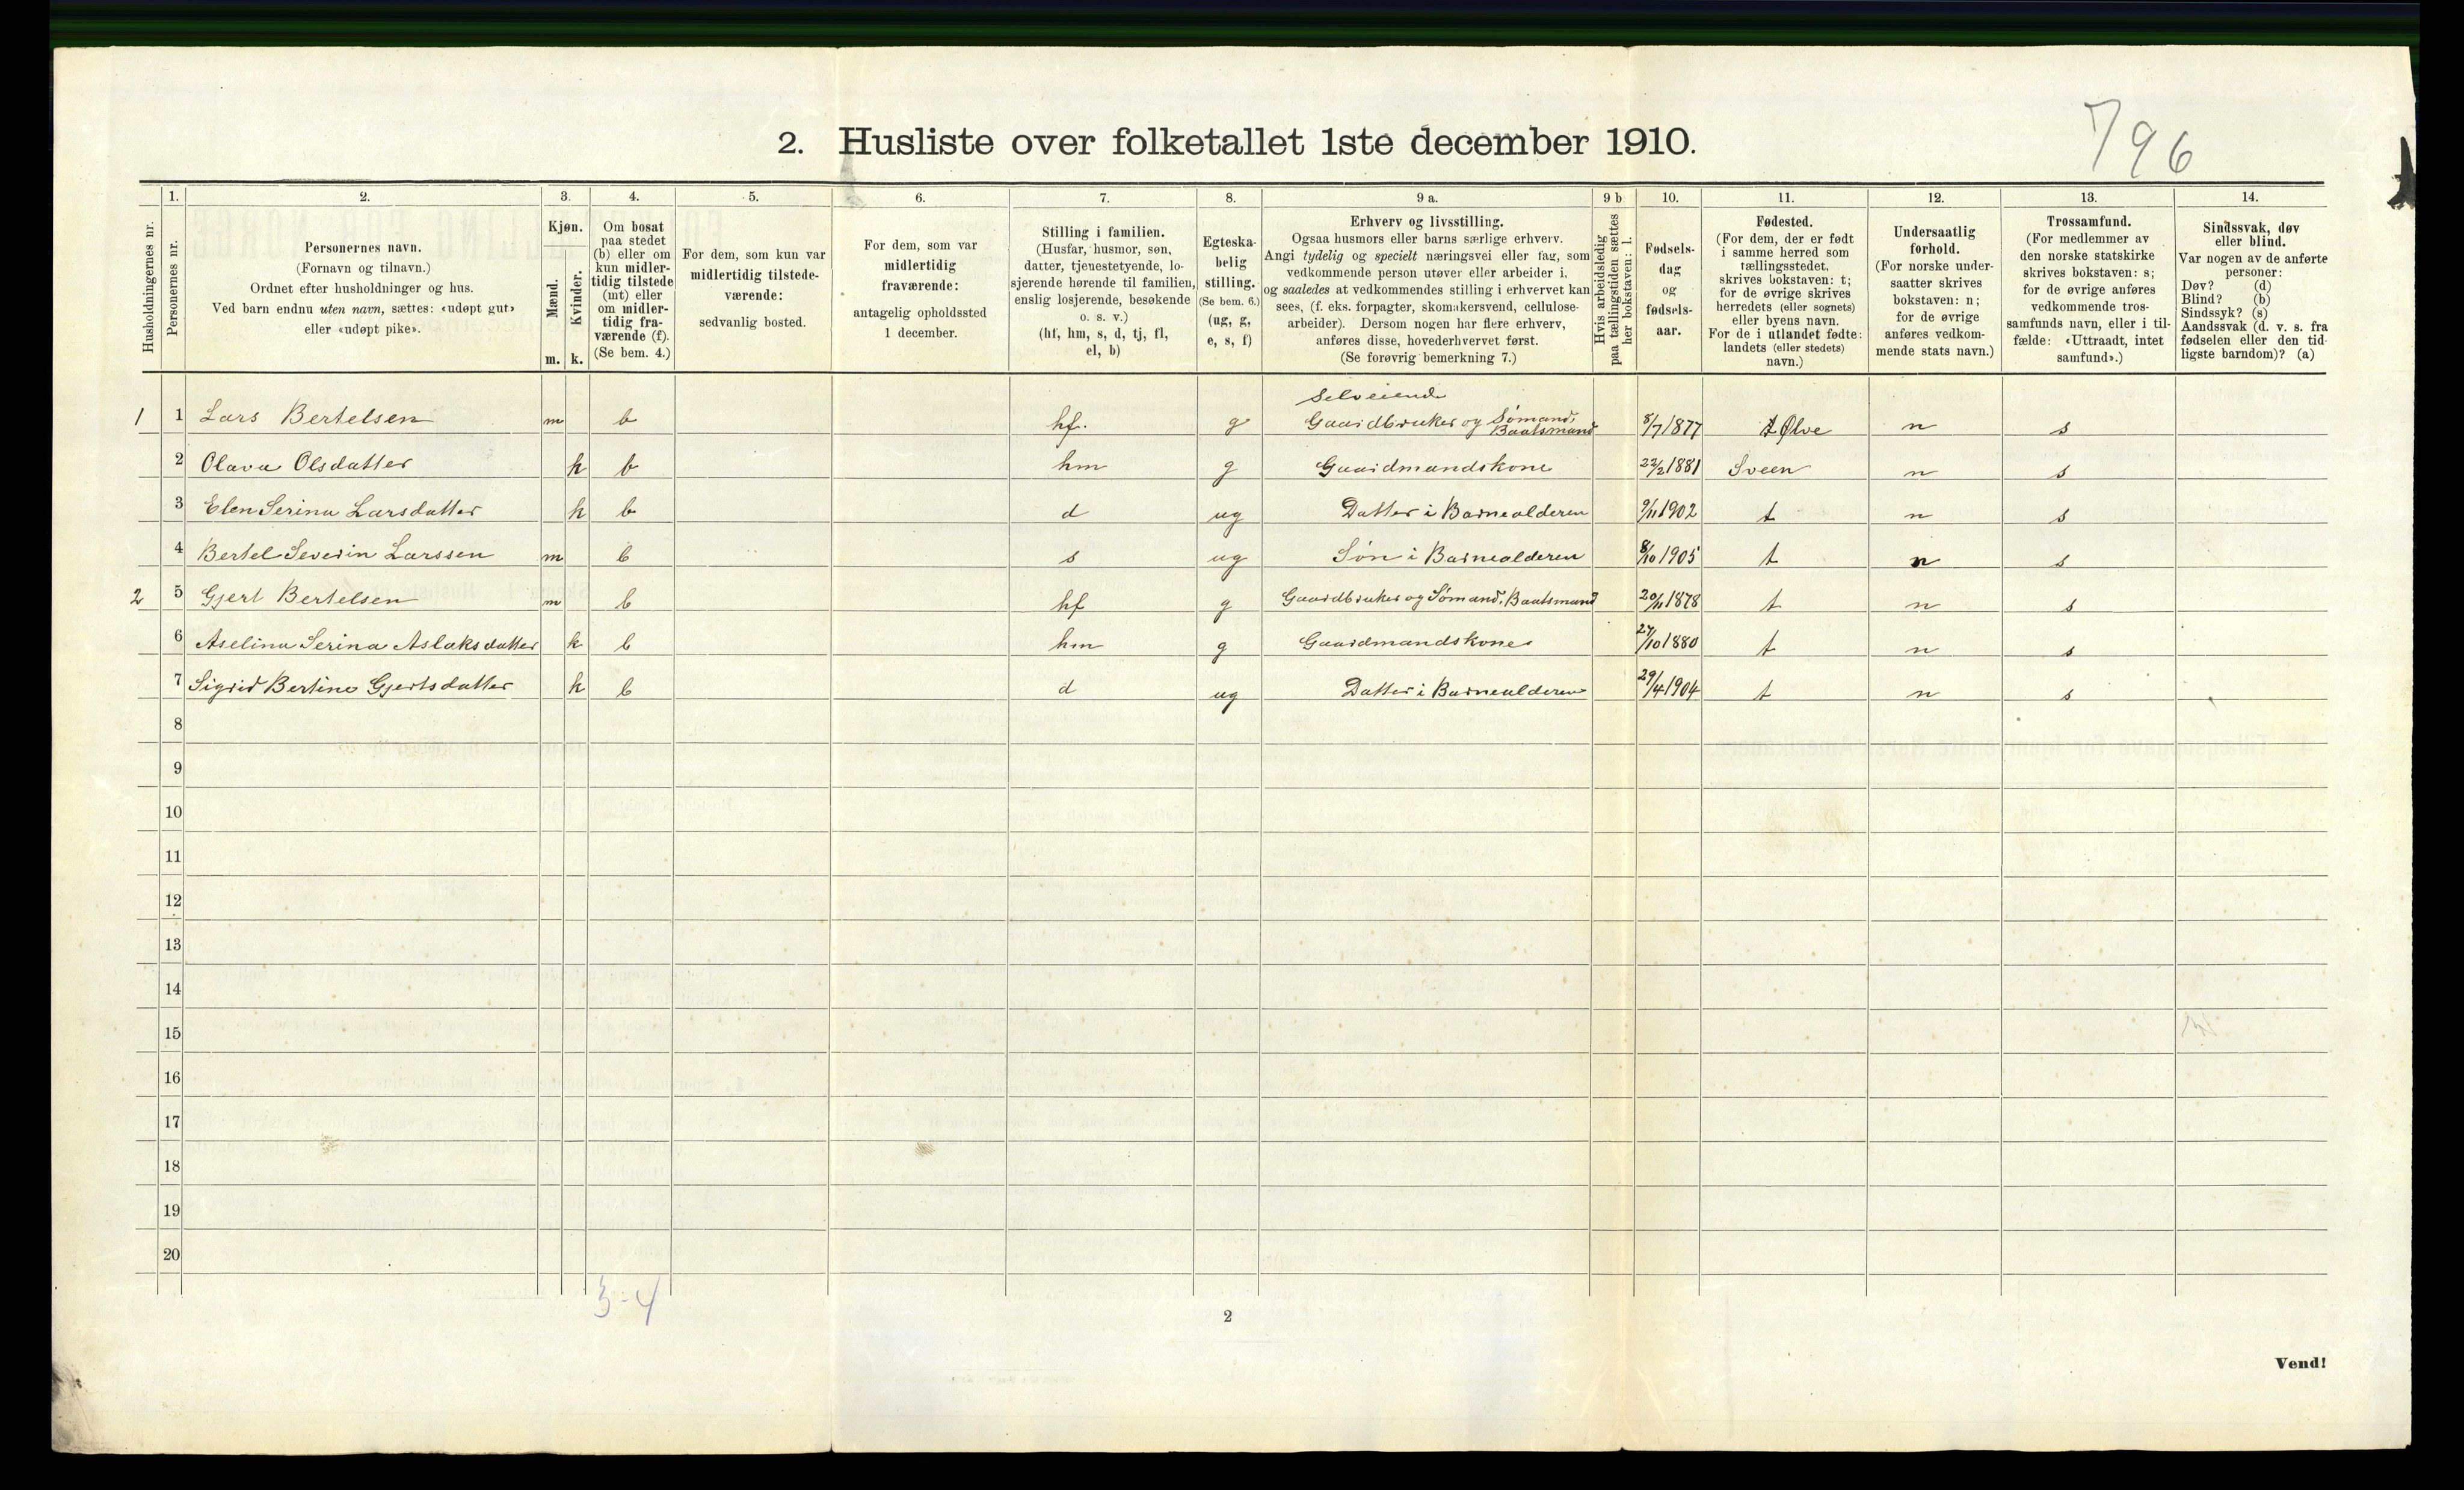 796
2. Husliste over folketallet 1ste december 1910.
Husholdningernes nr.
1.
Personernes nr.
2.
Personernes navn.
(Fornavn og tilnavn.)
Ordnet efter husholdninger og hus.
Ved barn endnu uten navn, sættes: «udøpt gut»
eller «udøpt pike».
3.
Kjøn.
Mænd.
Kvinder.
m. k.
4.
Om bosat
paa stedet
(b) eller om
kun midler-
tidig tilstede
(mt) eller
om midler-
tidig fra-
værende (f).
(Se bem. 4.)
5.
For dem, som kun var
midlertidig tilstede-
værende:
sedvanlig bosted.
6.
For dem, som var
midlertidig
fraværende:
antagelig opholdssted
1 december.
7.
Stilling i familien.
(Husfar, husmor, søn,
datter, tjenestetyende, lo-
sjerende hørende til familien,
enslig losjerende, besøkende
o. s. v.)
(hf, hm, s, d, tj, fl,
el, b)
8.
Egteska-
belig
stilling.
(Se bem. 6.)
(ug, g,
e, s, f)
9 a.
Erhverv og livsstilling.
Ogsaa husmors eller barns særlige erhverv.
Angi tydelig og specielt næringsvei eller fag, som
vedkommende person utøver eller arbeider i,
og saaledes at vedkommendes stilling i erhvervet kan
sees, (f. eks. forpagter, skomakersvend, cellulose-
arbeider). Dersom nogen har flere erhverv,
anføres disse, hovederhvervet først.
(Se forøvrig bemerkning 7.)
9 b
Hvis arbeidsledig
paa tællingstiden sættes
her bokstaven: l.
10.
Fødsels-
dag
og
fødsels-
aar.
11.
Fødested.
(For dem, der er født
i samme herred som
tællingsstedet,
skrives bokstaven: t;
for de øvrige skrives
herredets (eller sognets)
eller byens navn.
For de i utlandet fødte:
landets (eller stedets)
navn.)
12.
Undersaatlig
forhold.
(For norske under-
saatter skrives
bokstaven: n;
for de øvrige
anføres vedkom-
mende stats navn.)
13.
Trossamfund.
(For medlemmer av
den norske statskirke
skrives bokstaven: s;
for de øvrige anføres
vedkommende tros-
samfunds navn, eller i til-
fælde: «Uttraadt, intet
samfund».)
14.
Sindssvak, døv
eller blind.
Var nogen av de anførte
personer:
Døv? (d)
Blind? (b)
Sindssyk? (s)
Aandssvak (d. v. s. fra
fødselen eller den tid-
ligste barndom)? (a)
Selveiende
1 1 Lars Bertelsen m b hf. g Gaardbruker og Sømand, Baatsmand 8/7 1877 Ølve n s
2 Olava Olsdatter k b hm g Gaardmandskone 22/2 1881 Sveen n s
3 Elen Serina Larsdatter k b d ug Datter i Barnealderen 9/11 1902 t n s
4 Bertel Severin Larssen m b s ug Søn i Barnealderen 8/10 1905 t n s
2 5 Gjert Bertelsen m b hf g Gaardbruker og Sømand, Baatsmand 20/11 1878 t n s
6 Aselina Serina Aslaksdatter k b hm g Gaardmandskone 27/10 1880 t n s
7 Sigrid Bertine Gjertsdatter k b d ug Datter i Barnealderen 29/4 1904 t n s
8
9
10
11
12
13
14
15
16
17
18
19
20
3-4
2
Vend!